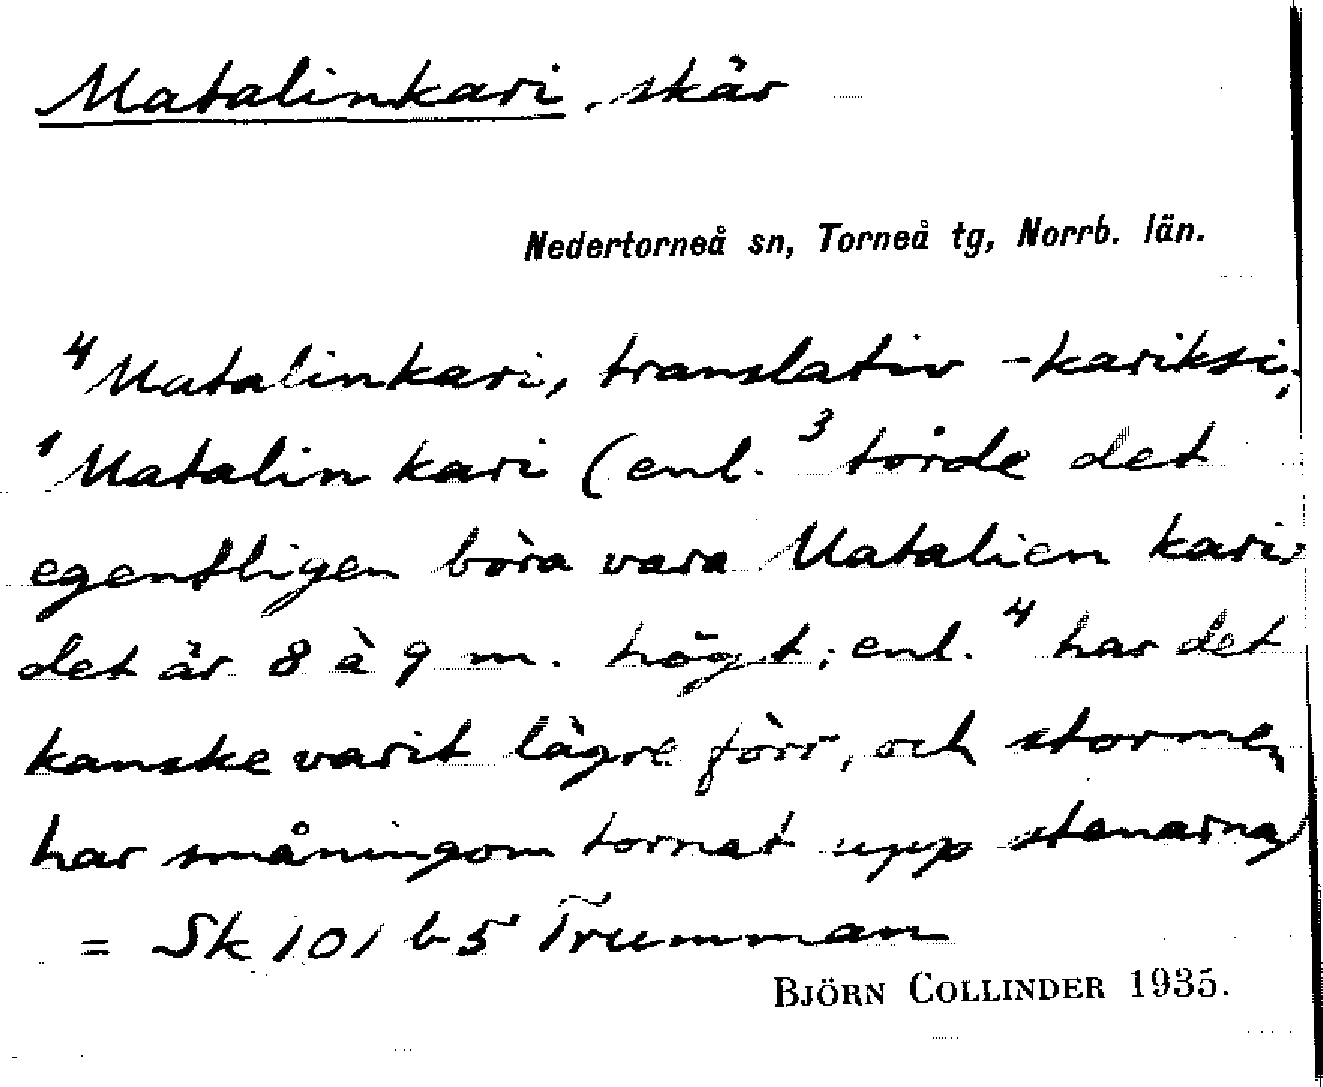 Matalinkari, skär
Nedertorneå sn, Torneå tg, Norrb. län.
⁴Matalinkari, translativ -kariksi;
¹Matalin kari (enl. ³ törde det
egentligen böra vara Matalien kari;
det är 8 à 9 m. högt; enl. ⁴ har det
kanske varit lägre förr, och stormen
har småningom tornat upp stenarna)
= Sk 101 b 5 Trumman
BJÖRN COLLINDER 1935.